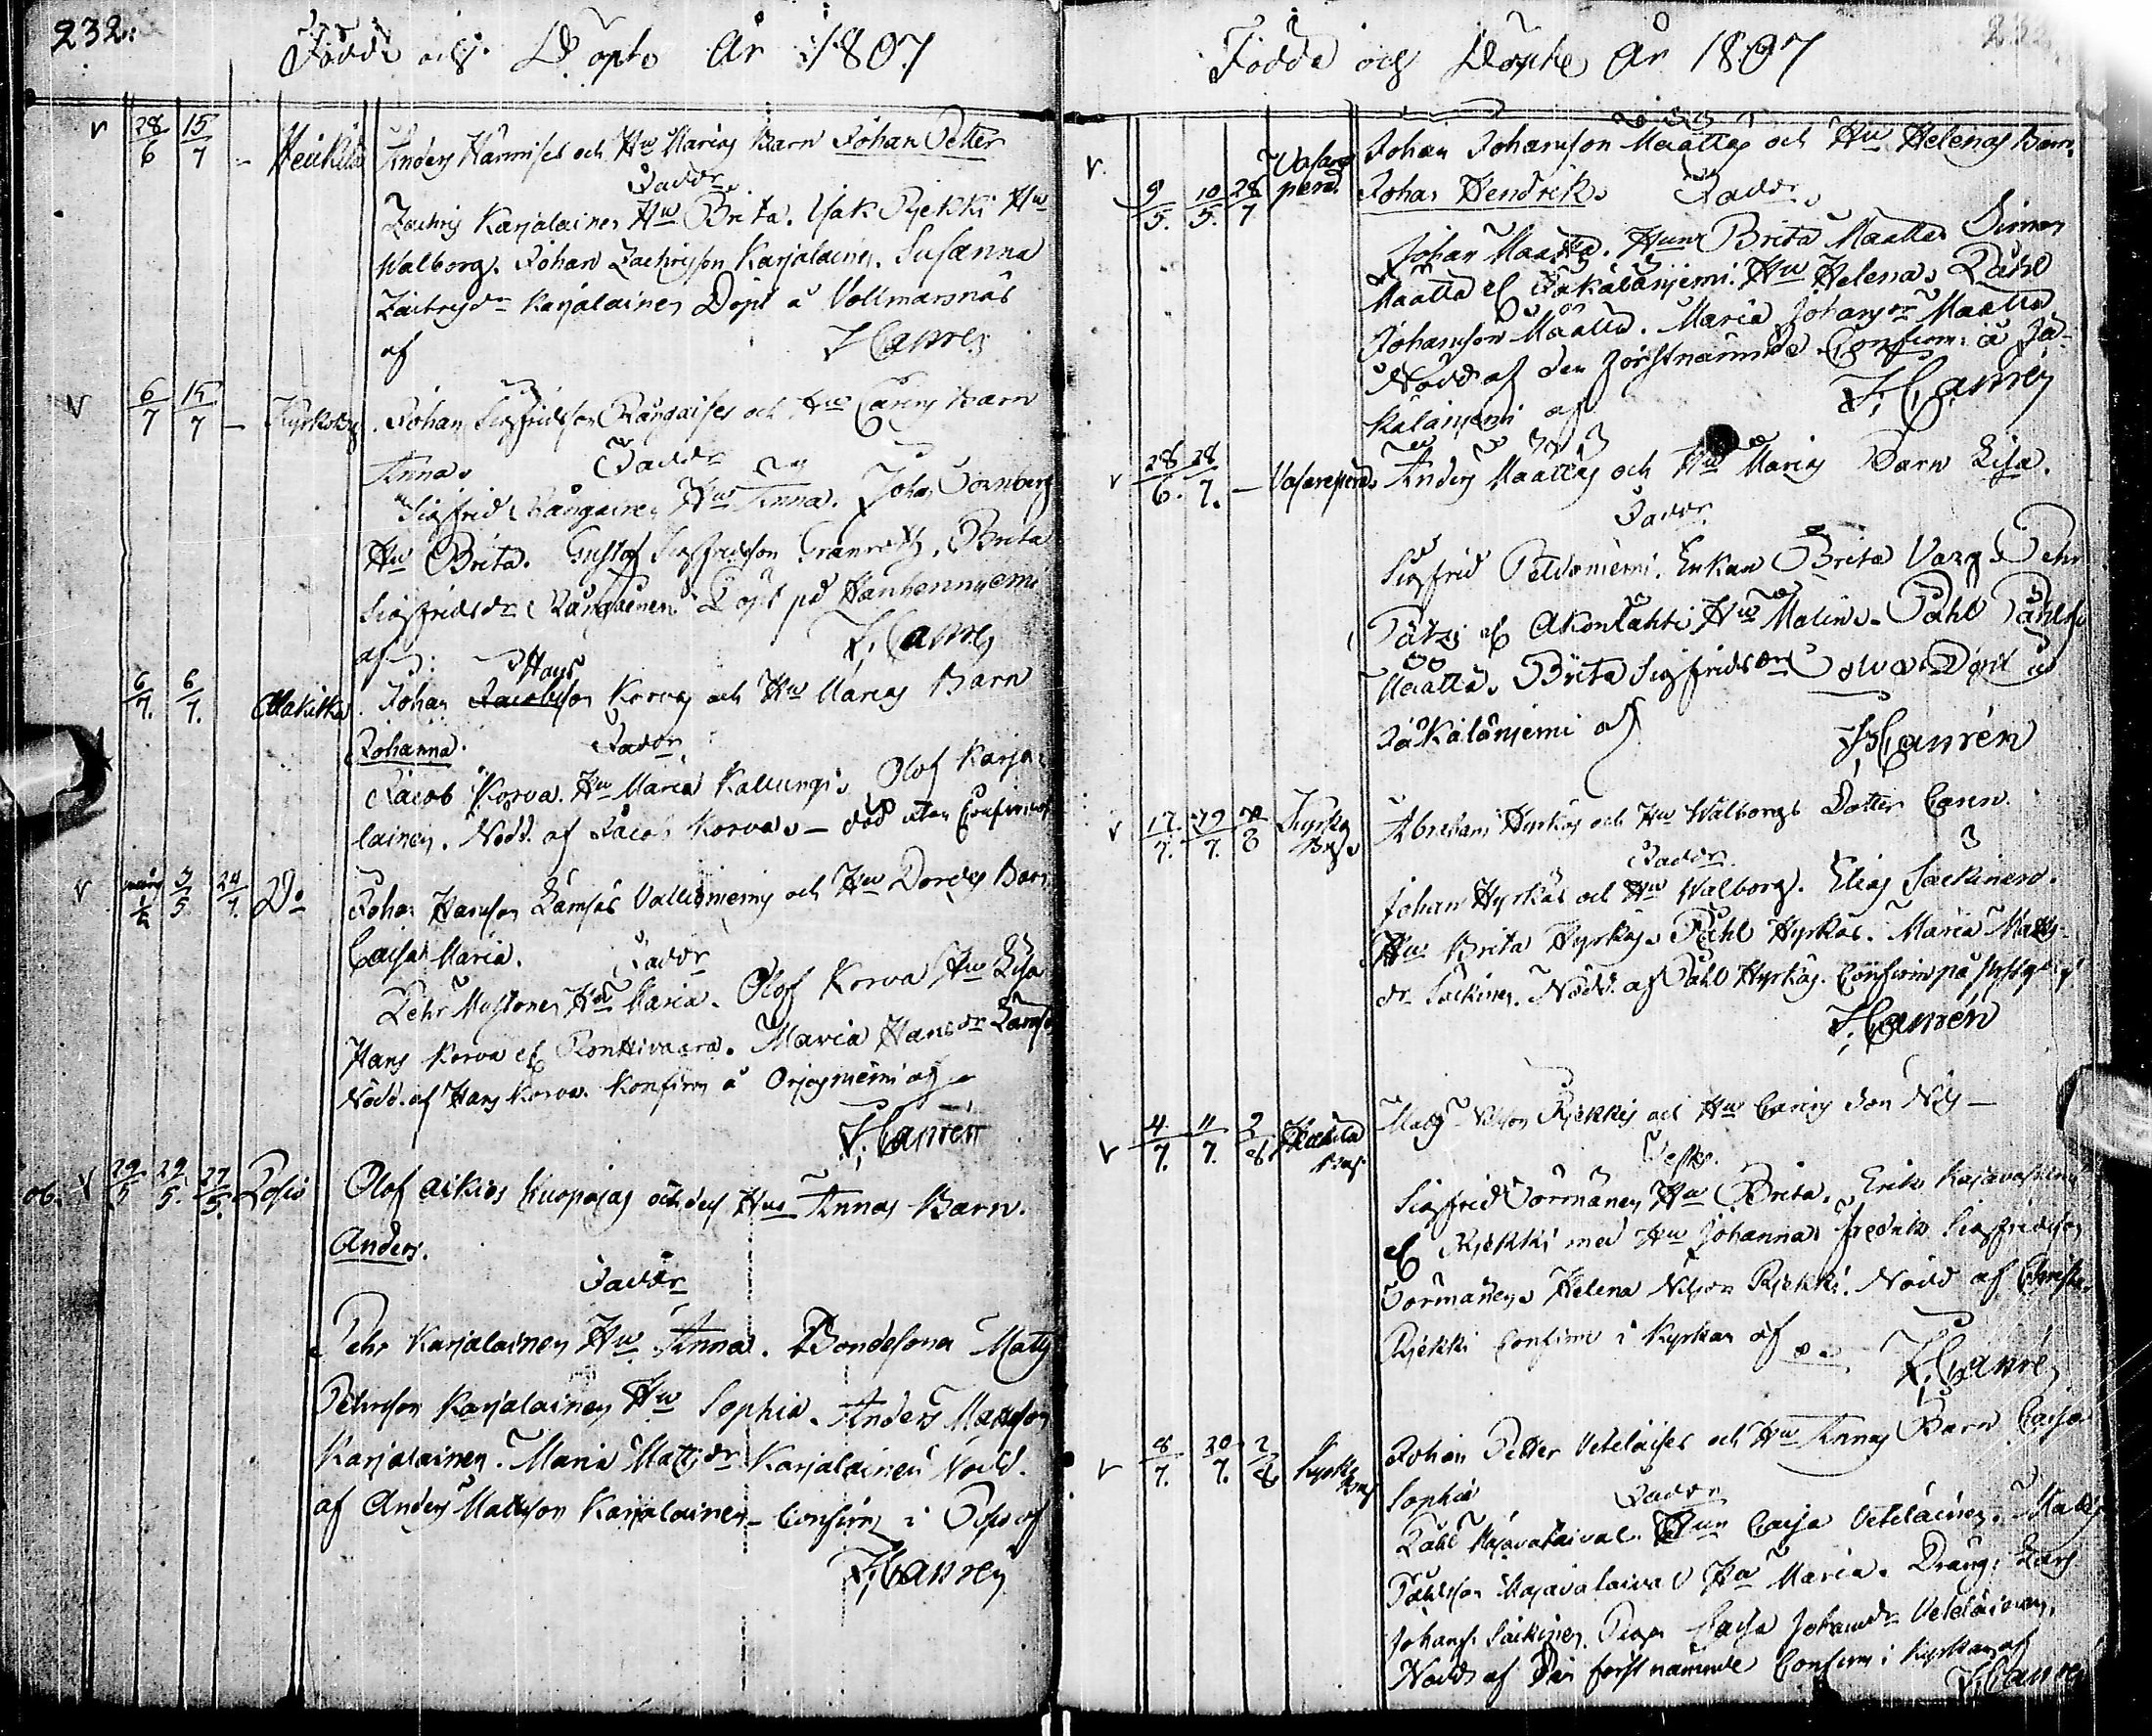 232.
Födde och Döpte År 1807
28/6 15/7 - Heikkilä Anders Harmises och Hu Marias Barn Johan Petter
Faddr
Zachris Karjalainen Hu Brita. Isak Riekki Hu
Walborg. Johan Zachrisson Karjalainen. Susanna
Zachrisdr Karjalainen Döpt å Vollmarsnäs
af F: Canrén
6/7 15/7 - Kyrkoby Johan Sigfridsson Rångaises och Hu Carins Barn
Anna. Faddr
Sigfrid Rångainen Hu Anna. Johan Törnberg
Hu Brita. Gustaf Sigfridsson Granroth, Brita
Sigfridsdr Rångainen Döpt på Hanhenniemi
af: F: Canrén
6/7. 6/7. Makitka Johan Jacobsson Hans Korvas och Hu Marias Barn
Johanna. Faddr
Jacob Korva. Hu Maria Kallungi. Olof Karja-
lainen. Nödd. af Jacob Korva. - död utan Confirm
1/2 3/5 24/7. Do Johan Hansson Lämsäs Valliöniemis och Hu Dordes Barn
Caisa Maria. Faddr
Pehr Mustonen Hu Maria. Olof Korva Hu Lisa
Hans Korva ef Ronttivaara. Maria Hansdr Lämsä
Nödd. af Hans Korva. Konfirm å Orjasniemi af
F: Canrén
ob. 29/5 29/5. 27/5. Posio Olof Aikios Kuopsjas och dess Hus Annas Barn.
Anders.
Faddr
Pehr Karjalainen Hu Anna. Bondesonen Matts
Pehrsson Karjalainen Hu Sophia. Anders Mattsson
Karjalainen. Maria Mattsdr Karjalainen Nödd.
af Anders Mattsson Karjalainen - Confirm i Posio af
F: Canrén
Födde och Döpte År 1807
9/5. 10/5. 28/7 Vasara perä. Johan Johansson Maattas och Hu Helenas Barn
Johan Hendrik. Faddr.
Johan Maatta. Hun Brita Maatta Simon
Maatta ef Jäkäläniemi. Hu Helena. Påhl
Johansson Maatta. Maria Johansdr Maatta
Nödd af den förstnämnde Confirm: å Jä-
käläniemi af F: Canrén
28/6. 28/7. - Vasaraperä. Anders Maattas och Hu Marias Barn Lisa.
Faddr
Sigfrid Peldoniemi. Enkan Brita Varg. Pehr
Pätzi ef Akonlahti Hu Malin. Påhl Påhlss
Maatta. Brita Sigfridsdr Döpt å
Jäkäläniemi af
F: Canrén
17/7. 19/7. 2/8 Kyrko By. Abraham Hyrkäs och Hu Walborgs Dotter Carin.
Faddr.
Johan Hyrkäs och Hu Walborg. Elias Säckinen.
Hu Brita Hyrkäs. Påhl Hyrkäs. Maria Matts-
dr Säckinen. Nödd. af Påhl Hyrkäs. Confirm på
F: Canrén
4/7. 11/7. 2/8 Matts Nilsson Riekkis och Hu Carins Son Nils -
Test.
Sigfrid Törmänen Hu Brita. Erik
ef Riekki med Hu Johanna. Fredrik Sigfridsson
Törmänen. Helena Nilsdr Riekki. Nödd af
Riekki Confirm i Kyrkan af
F: Canrén
8/7. 20/7. 2/8 Kyrko By Johan Petter Veteläises och Hu Annas Barn Caisa
Sophia Faddr
Påhl Majavataival. Hun Caisa Veteläinen. Matts
Påhlsson Majavataival Hu Maria. Dräng: Lars
Johans: Säckinen. Pigan Caisa Johansdr Veteläinen.
Nödd af Den förstnämnde Confirm i Kyrkan af
F: Canrén